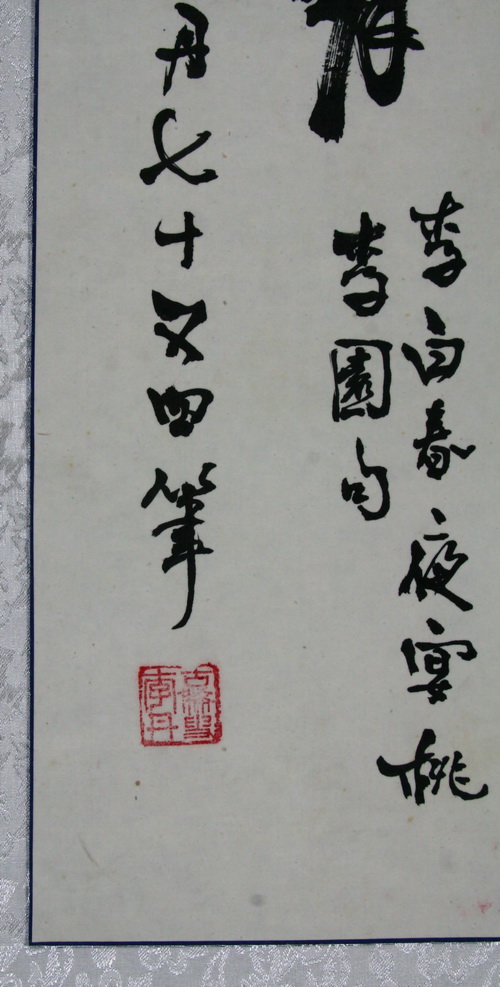 李白春夜宴桃
李園句
丹七十又四筆
李丹